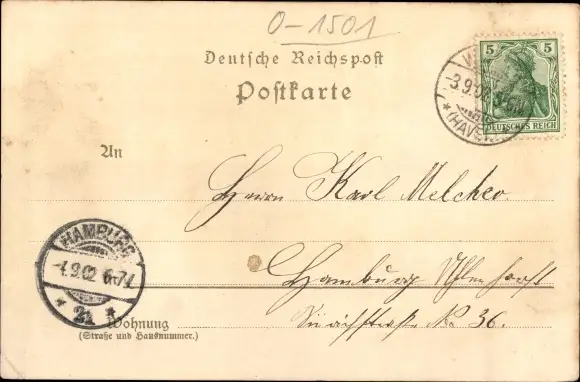 0-1501
Deutsche Reichspost
Postkarte
5 5
DEUTSCHES REICH
3.9.02
* (HAVEL)
An
Herrn Karl Melcher.
Hamburg Uhlenhorst
No 36.
HAMBURG
4.9.02 6-7V
* 21 *
Wohnung
(Straße und Hausnummer.)